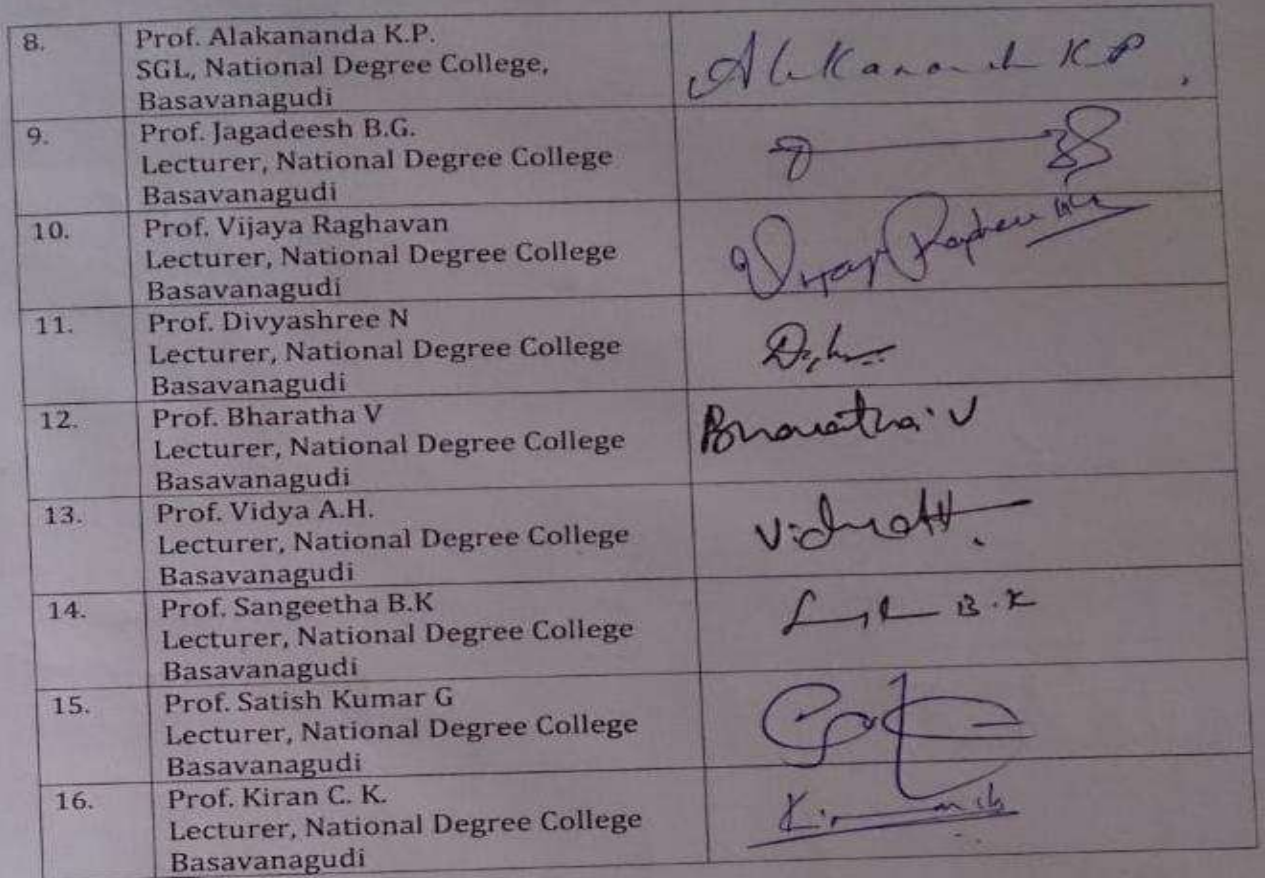 8.
Prof. Alakananda K.P.
SGL, National Degree College,
Basavanagudi
Alakananda K P
9.
Prof. Jagadeesh B.G.
Lecturer, National Degree College
Basavanagudi
10.
Prof. Vijaya Raghavan
Lecturer, National Degree College
Basavanagudi
11.
Prof. Divyashree N
Lecturer, National Degree College
Basavanagudi
12.
Prof. Bharatha V
Lecturer, National Degree College
Basavanagudi
Bharatha V
13.
Prof. Vidya A.H.
Lecturer, National Degree College
Basavanagudi
14.
Prof. Sangeetha B.K
Lecturer, National Degree College
Basavanagudi
B.K
15.
Prof. Satish Kumar G
Lecturer, National Degree College
Basavanagudi
16.
Prof. Kiran C. K.
Lecturer, National Degree College
Basavanagudi